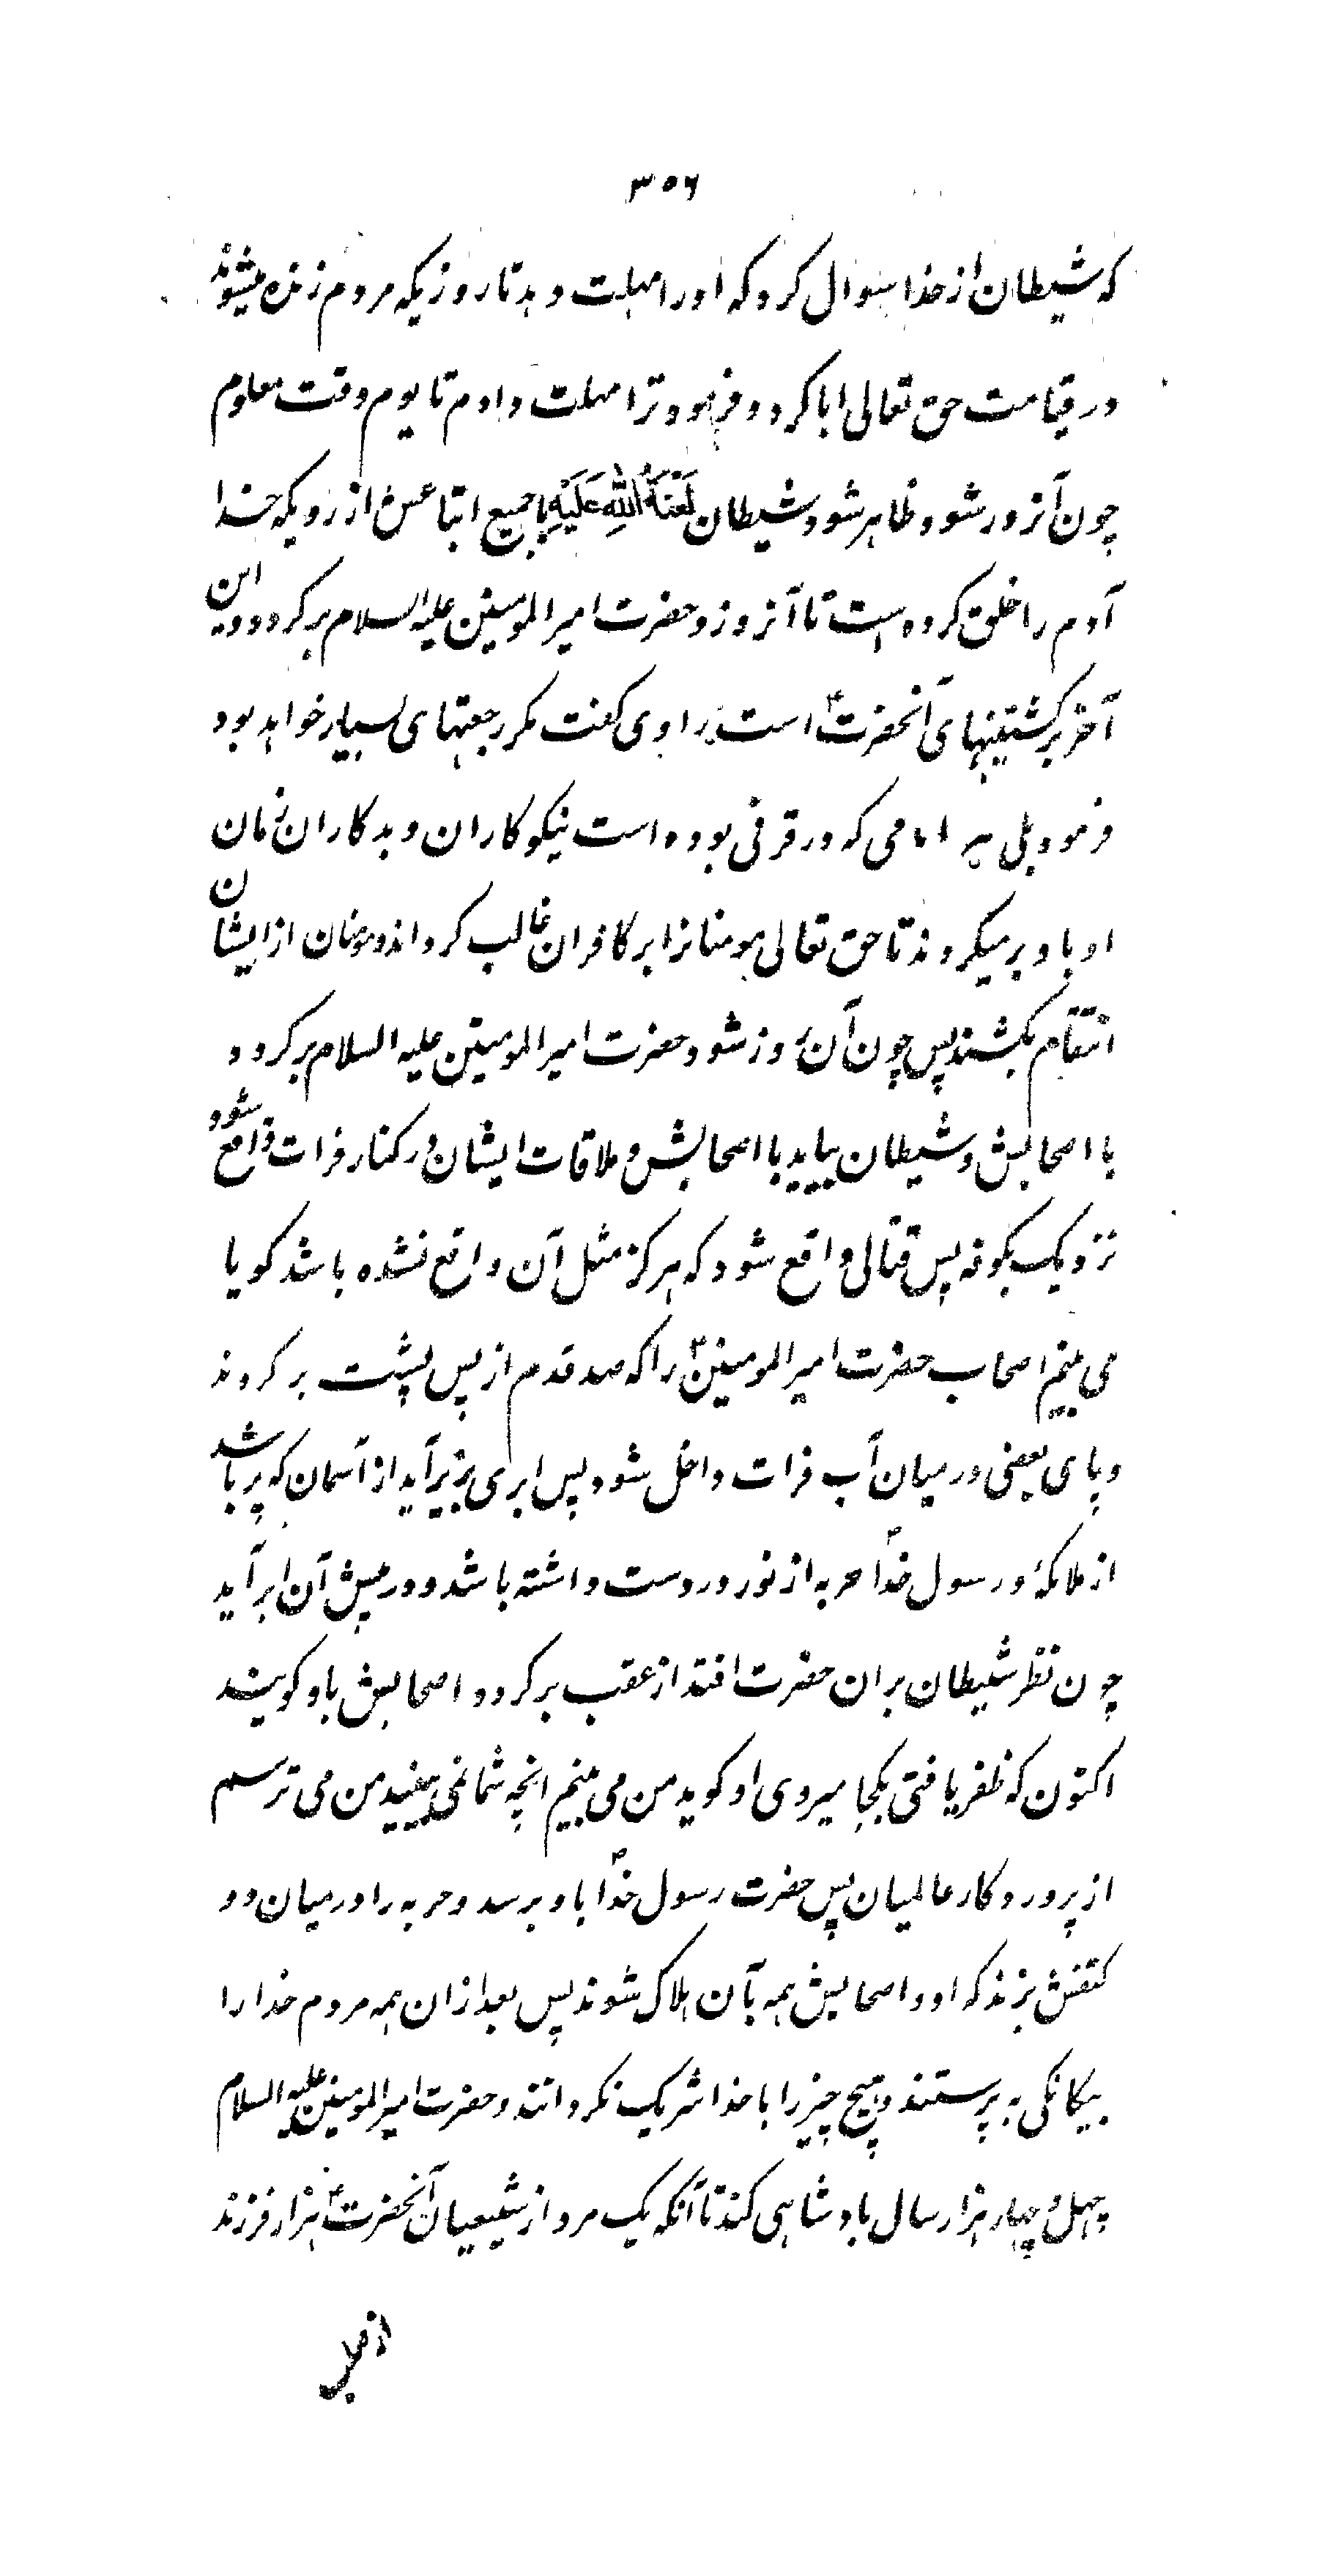 ۳۵۶
که شیطان از خدا سوال کرد که اورا مهلت دهد تا روزیکه مردم زنده میشوند
در قیامت حق تعالی ابا کرد و فرمود ترا مهلت دادم تا یوم وقت معلوم
چون آنروز شود ظاهر شود شیطان لَعْنَةُ اللّٰهِ عَلَیْهِ با جمیع اتباعش از روزیکه خدا
آدم را خلق کرده است تا آنروز و حضرت امیر المومنین علیه السلام برکردد و این
آخر برکشتنهای آنحضرتؑ است راوی کفت مکر رجعتهای بسیار خواهد بود
فرمود بلی هر امامی که در قرنی بوده است نیکو کاران و بدکاران زمان
او با او برمیکردند تا حق تعالی مومنانرا بر کافران غالب کرداند و مومنان از ایشان
انتقام بکشند پس چون آن روز شود حضرت امیر المومنین علیه السلام برکردد
با اصحابش و شیطان بیاید با اصحابش و ملاقات ایشان در کنار فرات واقع شود
نزدیک بکوفه پس قتالی واقع شود که هرکز مثل آن واقع نشده باشد کویا
می بینم اصحاب حضرت امیر المومنینؑ را که صد قدم از پس پشت برکردند
و پای بعضی در میان آب فرات داخل شود پس ابری بزیر آید از آسمان که پر باشد
از ملائکه و رسول خداؐ حربه از نور در دست داشته باشد و در پیش آن ابر آید
چون نظر شیطان بران حضرت افتد از عقب برکردد اصحابش باو کویند
اکنون که ظفر یافتی بکجا میروی او کوید من می بینم انچه شما نمی بینید من می ترسم
از پروردکار عالمیان پس حضرت رسول خداؐ باو برسد و حربه را در میان دو
کتفش بزند که او و اصحابش همه بآن هلاک شوند پس بعد ازان همه مردم خدا را
بیکانکی به پرستند و هیچ چیز را با خدا شریک نکردانند و حضرت امیر المومنین علیه السلام
چهل و چهار هزار سال بادشاهی کند تا آنکه یک مرد از شیعیان آنحضرتؑ هزار فرزند